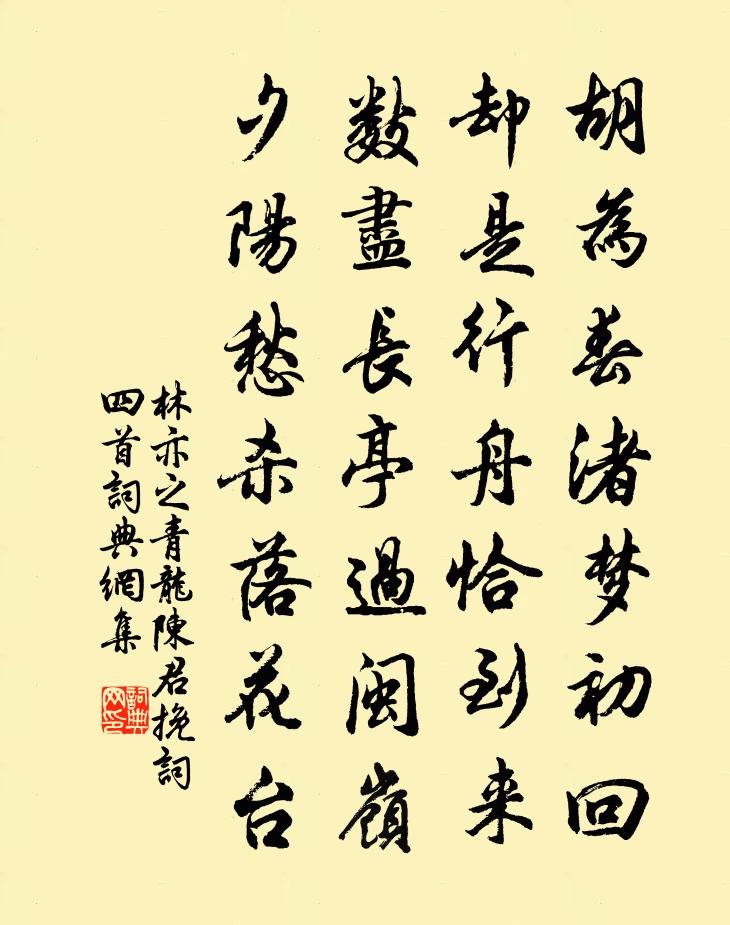 胡為春渚梦初回
却是行舟恰到来
數盡長亭過閩嶺
夕陽愁杀落花台
林亦之青龍陳君挽詞
四首詞典網集
詞典网印